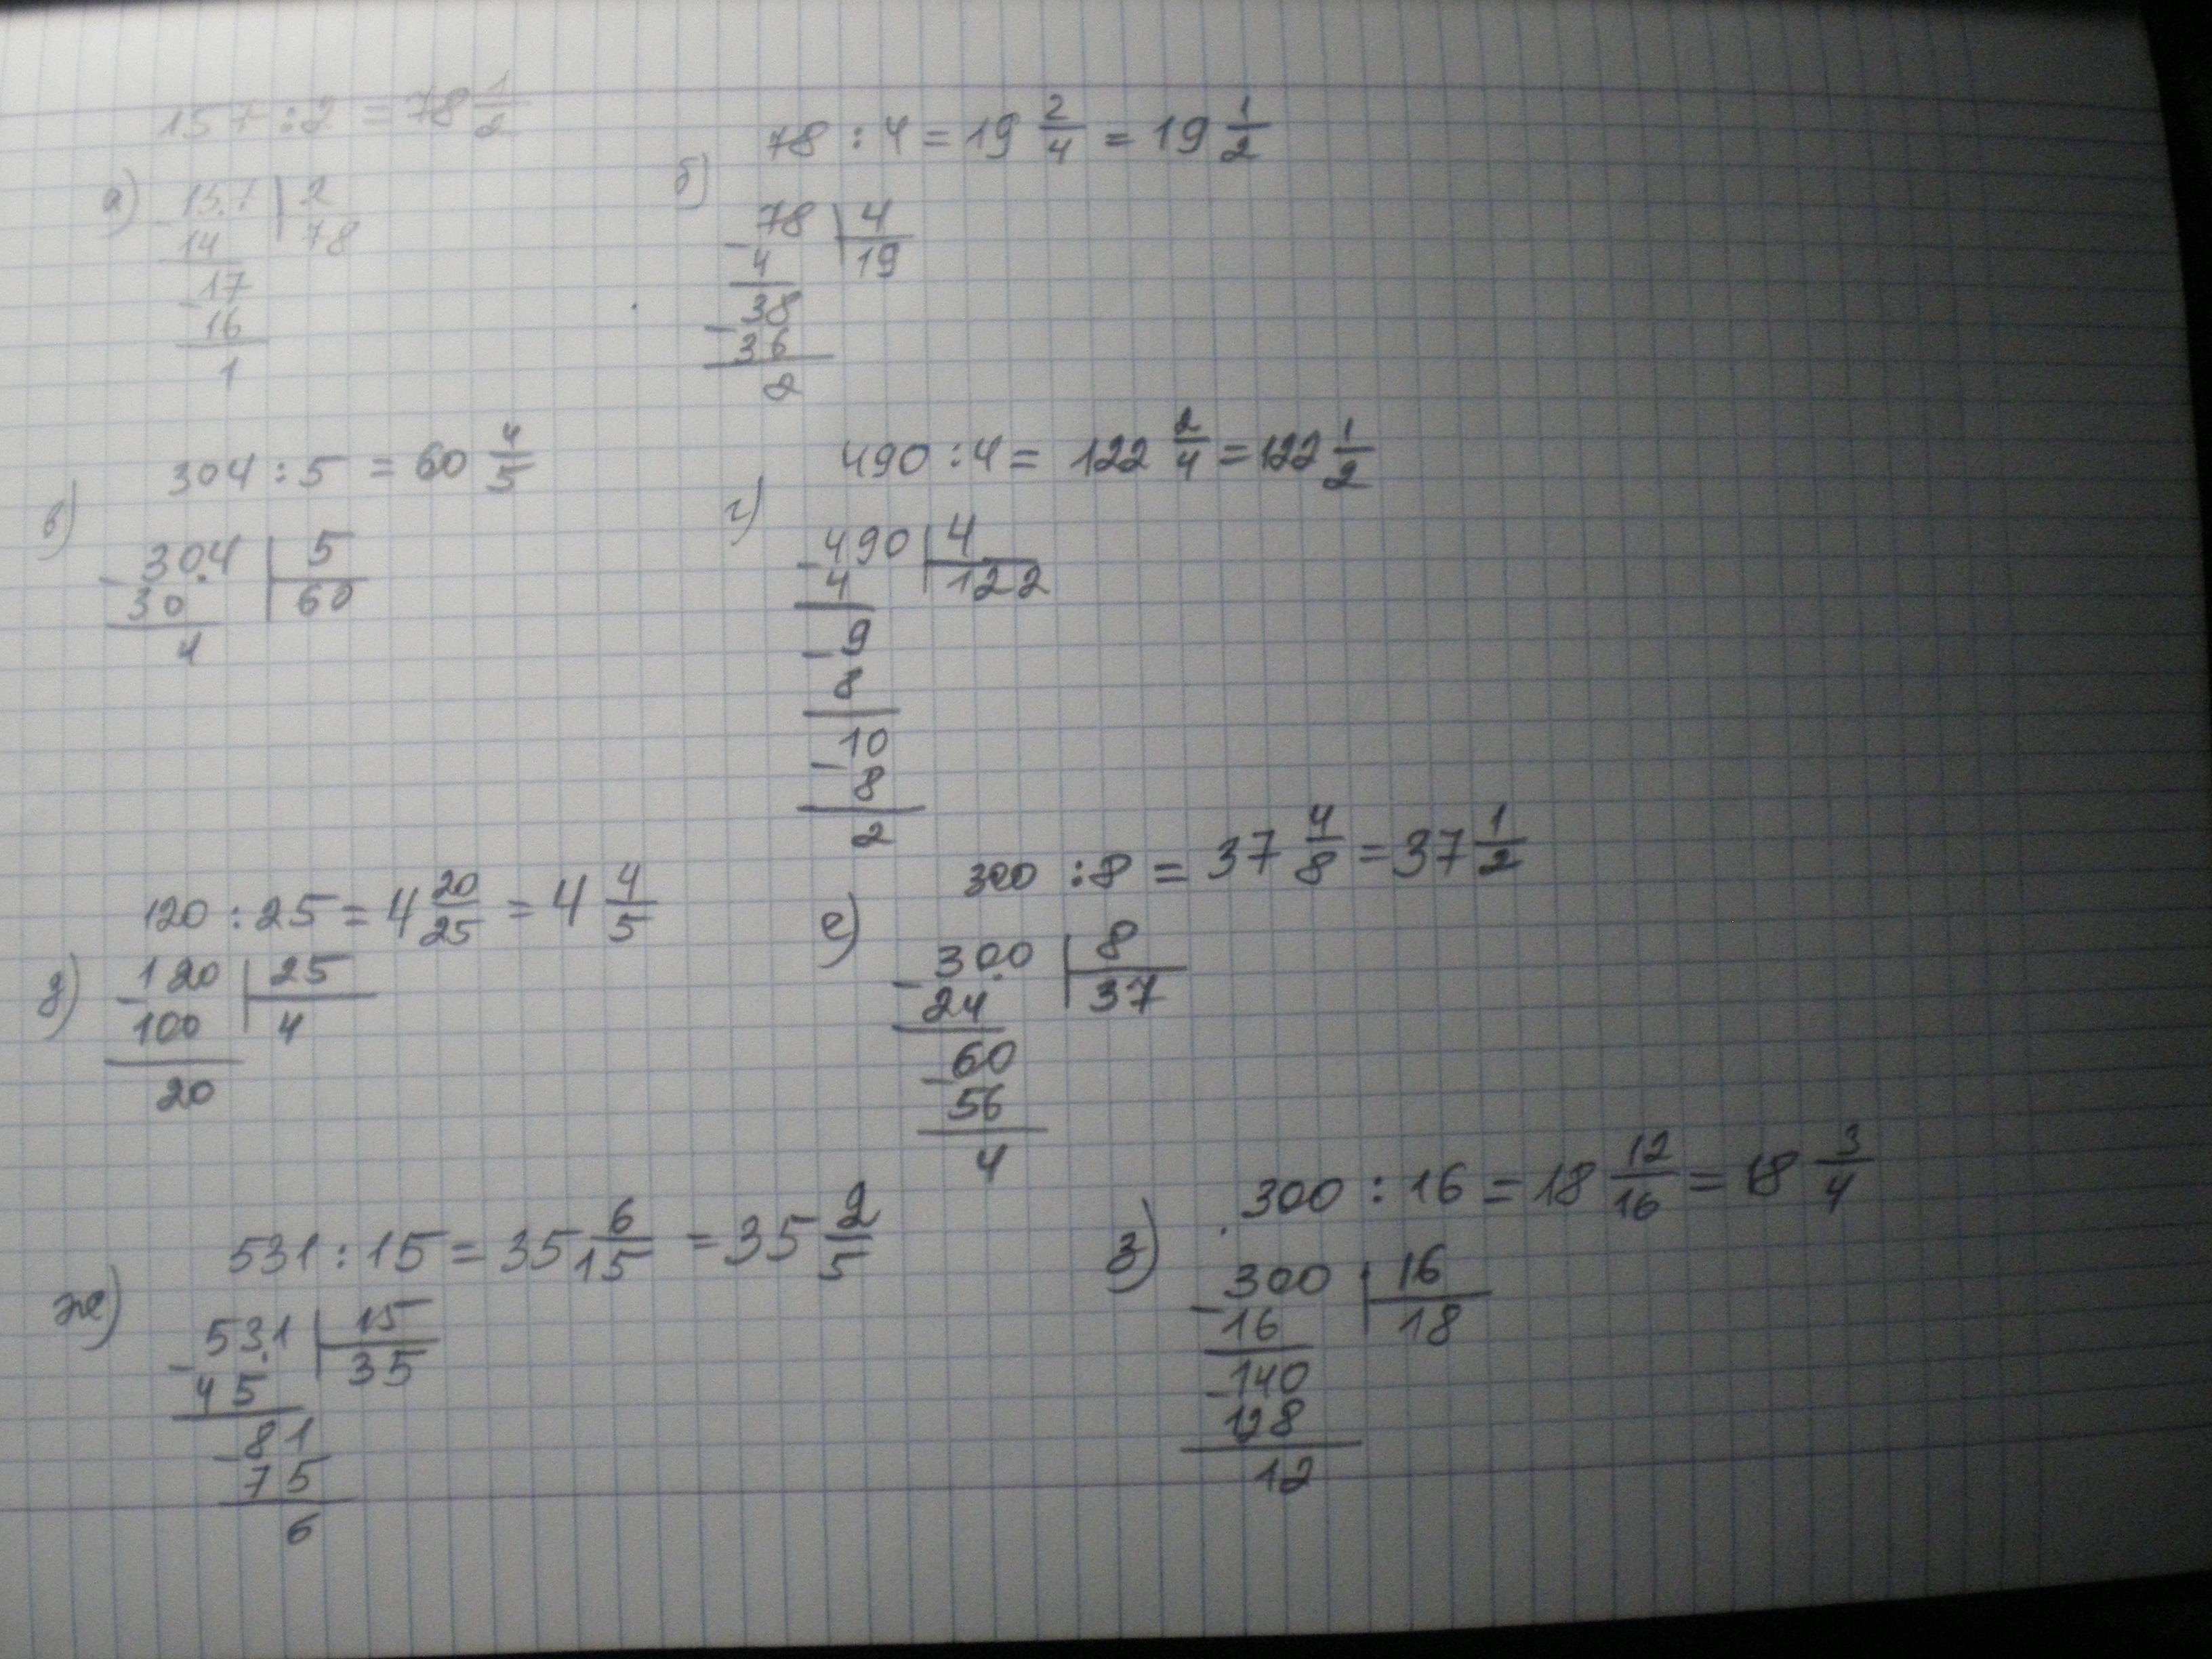 157 : 2 = 78 1/2
а) 157 | 2
- 14 | 78
17
- 16
1
78 : 4 = 19 2/4 = 19 1/2
б) 78 | 4
- 4 | 19
38
- 36
2
304 : 5 = 60 4/5
в) 30.4 | 5
- 30 | 60
4
490 : 4 = 122 2/4 = 122 1/2
г) 490 | 4
- 4 | 122
- 9
8
- 10
8
2
120 : 25 = 4 20/25 = 4 4/5
д) 120 | 25
- 100 | 4
20
300 : 8 = 37 4/8 = 37 1/2
е) 300 | 8
- 24 | 37
- 60
56
4
531 : 15 = 35 6/15 = 35 2/5
ж) 53.1 | 15
- 45 | 35
- 81
75
6
300 : 16 = 18 12/16 = 18 3/4
з) 300 | 16
- 16 | 18
- 140
128
12